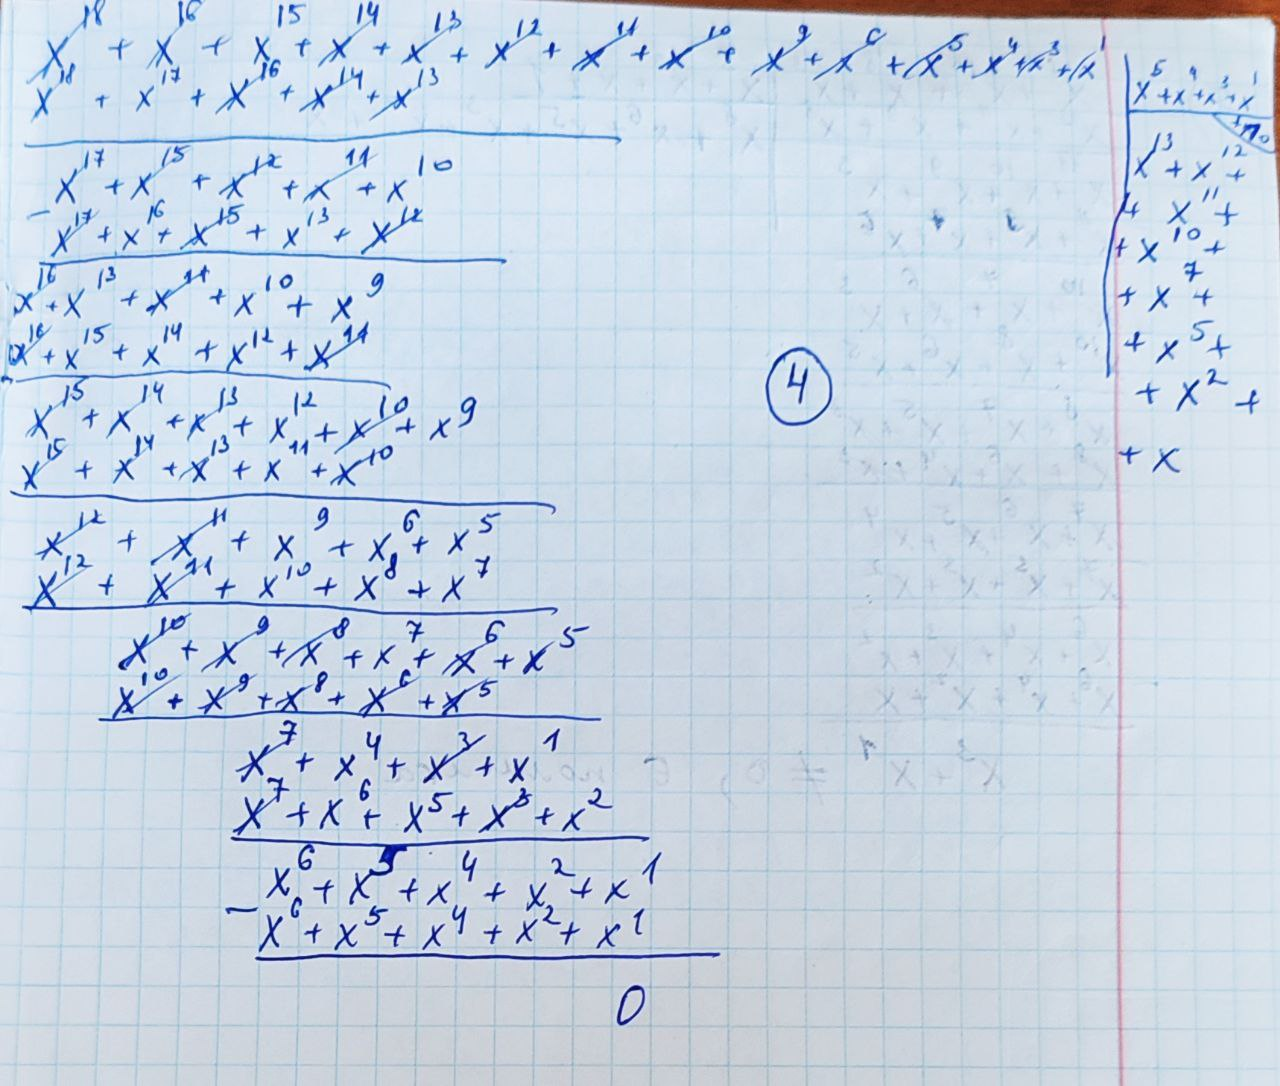 x¹⁸ + x¹⁶ + x¹⁵ + x¹⁴ + x¹³ + x¹² + x¹¹ + x¹⁰ + x⁹ + x⁶ + x⁵ + x⁴ + x³ + x¹
x¹⁸ + x¹⁷ + x¹⁶ + x¹⁴ + x¹³
x¹⁷ + x¹⁵ + x¹² + x¹¹ + x¹⁰
− x¹⁷ + x¹⁶ + x¹⁵ + x¹³ + x¹²
x¹⁶ + x¹³ + x¹¹ + x¹⁰ + x⁹
x¹⁶ + x¹⁵ + x¹⁴ + x¹² + x¹¹
x¹⁵ + x¹⁴ + x¹³ + x¹² + x¹⁰ + x⁹
x¹⁵ + x¹⁴ + x¹³ + x¹¹ + x¹⁰
x¹² + x¹¹ + x⁹ + x⁶ + x⁵
x¹² + x¹¹ + x¹⁰ + x⁸ + x⁷
x¹⁰ + x⁹ + x⁸ + x⁷ + x⁶ + x⁵
x¹⁰ + x⁹ + x⁸ + x⁶ + x⁵
x⁷ + x⁴ + x³ + x¹
x⁷ + x⁶ + x⁵ + x³ + x²
x⁶ + x⁵ + x⁴ + x² + x¹
− x⁶ + x⁵ + x⁴ + x² + x¹
0
4
x⁵ + x⁴ + x³ + x¹
x¹³ + x¹² +
+ x¹¹ +
+ x¹⁰ +
+ x⁷ +
+ x⁵ +
+ x² +
+ x